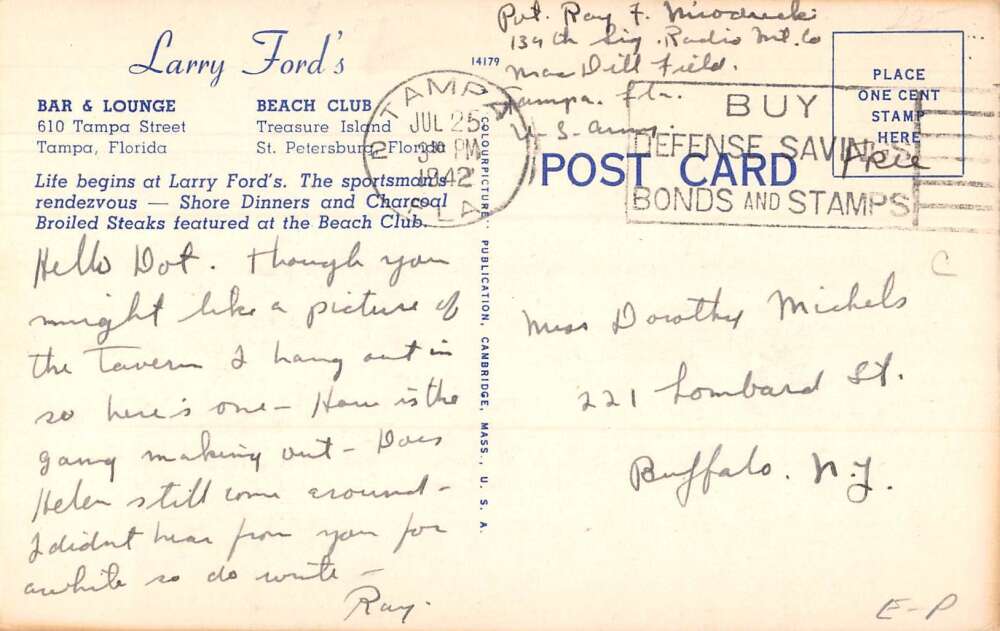 Larry Ford's
BAR & LOUNGE
610 Tampa Street
Tampa, Florida
BEACH CLUB
Treasure Island
St. Petersburg, Florida
Life begins at Larry Ford's. The sportsman's
rendezvous — Shore Dinners and Charcoal
Broiled Steaks featured at the Beach Club.
Hello Dot. Though you
might like a picture of
the Tavern I hang out in
so here's one — How is the
gang making out — Does
Helen still come around —
I didnt hear from you for
awhile so do write —
Ray.
14179
COLOURPICTURE PUBLICATION, CAMBRIDGE, MASS., U. S. A.
Pvt. Ray F.
139th Sig. Radio Int. Co
Mac Dill Field.
Tampa. Fla.
U-S-Army.
TAMPA
JUL 25
3 30 PM
1942
FLA
BUY
DEFENSE SAVINGS
BONDS AND STAMPS
PLACE
ONE CENT
STAMP
HERE
Free
POST CARD
Miss Dorothy Michels
221 Lombard St.
Buffalo. N.Y.
C
E-P